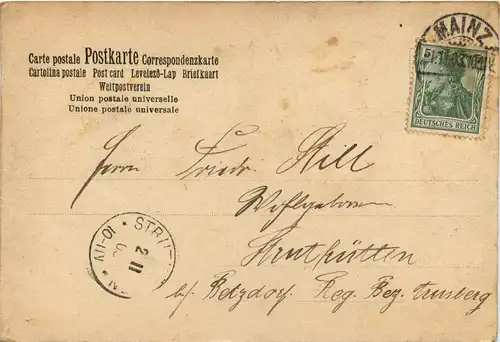 Carte postale Postkarte Correspondenzkarte
Cartolina postale Post card Levelező-Lap Briefkaart
Weltpostverein
Union postale universelle
Unione postale universale
MAINZ
5
DEUTSCHES REICH
Herrn Friedr. Still
Wohlgeboren
Struthütten
b/ Betzdorf Reg. Bez. Arnsberg
STR
2 11
10-11V